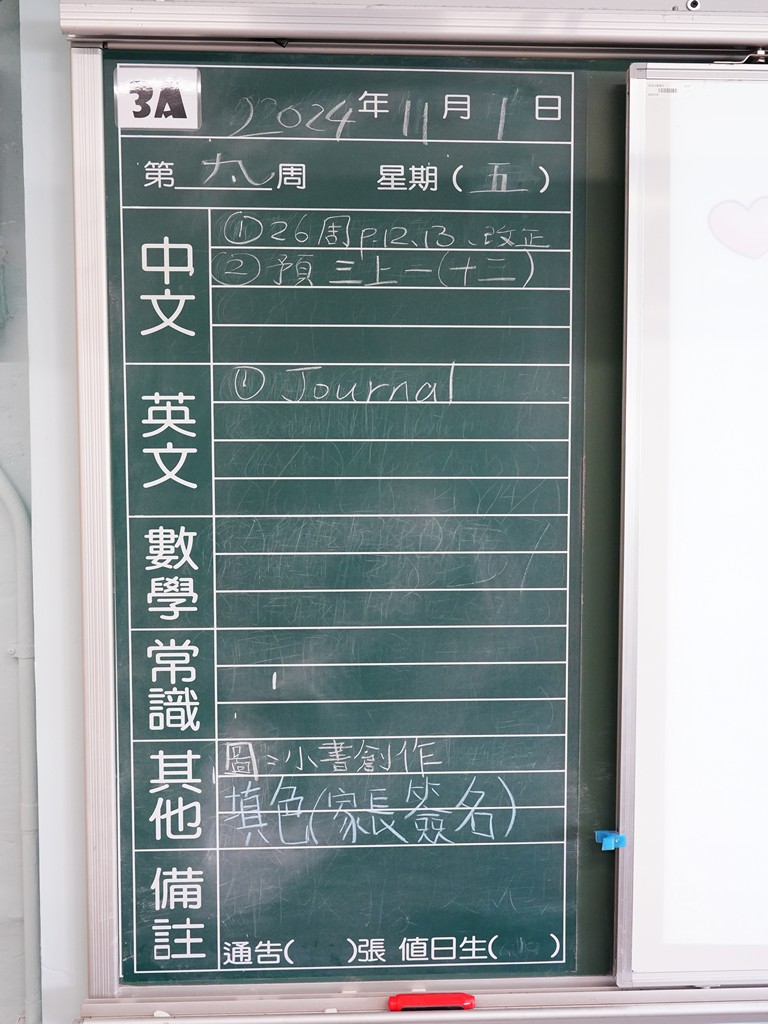 3A
2024年11月1日
第 周 星期(五)
中文
①26周p.12、13、改正
②預 三上一(十三)
英文
① Journal
數學
常識
其他
圖:小書創作
填色(家長簽名)
備註
通告( )張 值日生( )